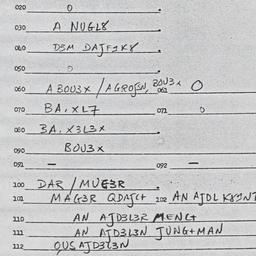 020 0
030 A NUGL8
040 D3M DAJFIK8
050 0
060 A BOU3X / AGROJSN, BOU3X 061 0
070 BA.XL7 071 0
080 BA.X3L3X
090 BOU3X
091 — 092 —
100 DAR / MUG3R
101 MAG3R QDAJC+ 102 AN AJDLK8INT
110 AN AJD3L3R MENC+
111 AN AJD3L3N JUNG+MAN
112 QUSAJD3L3N